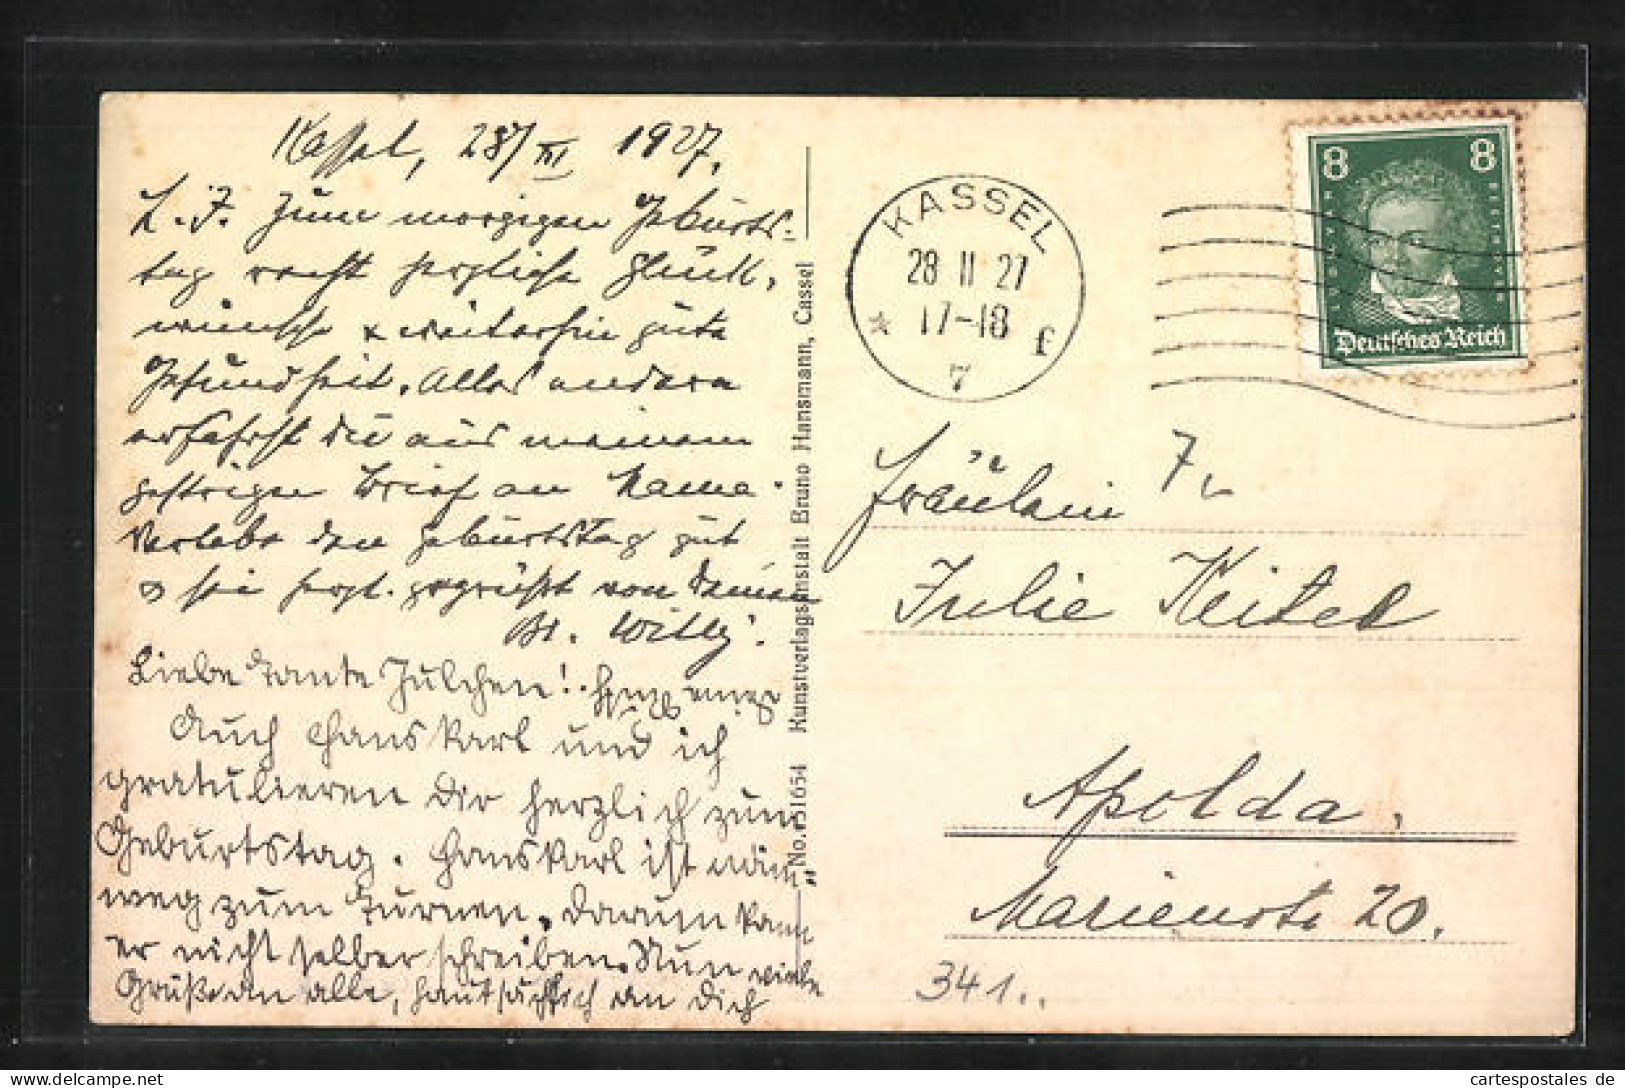 Kassel, 28/II 1927.
L. J. Zum morgigen Geburts-
tag recht herzliche Glück-
wünsche & weiterhin gute
Gesundheit. Alles andere
erfährst du aus meinem
gestrigen Brief an Mama.
Verlebe den Geburtstag gut
& sei herzl. gegrüßt von Deinem
Br. Willy.
Liebe Tante Julchen!
Auch Hanskarl und ich
gratulieren Dir herzlich zum
Geburtstag. Hanskarl ist näm-
weg zum Turnen, darum kann
er nicht selber schreiben. Nun viele
Grüße an alle, hauptsächlich an Dich
Deine
No. 51654 Kunstverlagsanstalt Bruno Hansmann, Cassel
KASSEL
28 II 27
17-18
* f
7
8 8
Deutsches Reich
Fräulein
7
Julie Keitel
Apolda,
Marienstr 20.
341..
cartespostales de